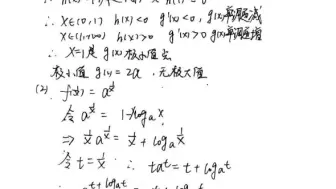 ∴ x∈(0,1) h(x)<0 g'(x)<0, g(x)单调递减
x∈(1,+∞) h(x)>0 g'(x)>0 g(x)单调递增
∴ x=1是 g(x) 极小值点
极小值 g(1)=2a , 无极大值
(2).
令 a^{\frac{1}{x}} = 1-x\log_a x
⇒ \frac{1}{x} a^{\frac{1}{x}} = \frac{1}{x} + \log_a \frac{1}{x}
令 t = \frac{1}{x} ∴ ta^t = t + \log_a t